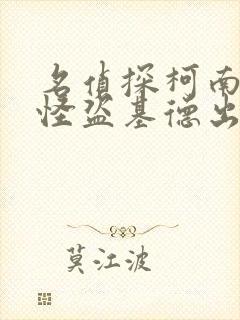 名侦探柯南
怪盗基德出
莫江波